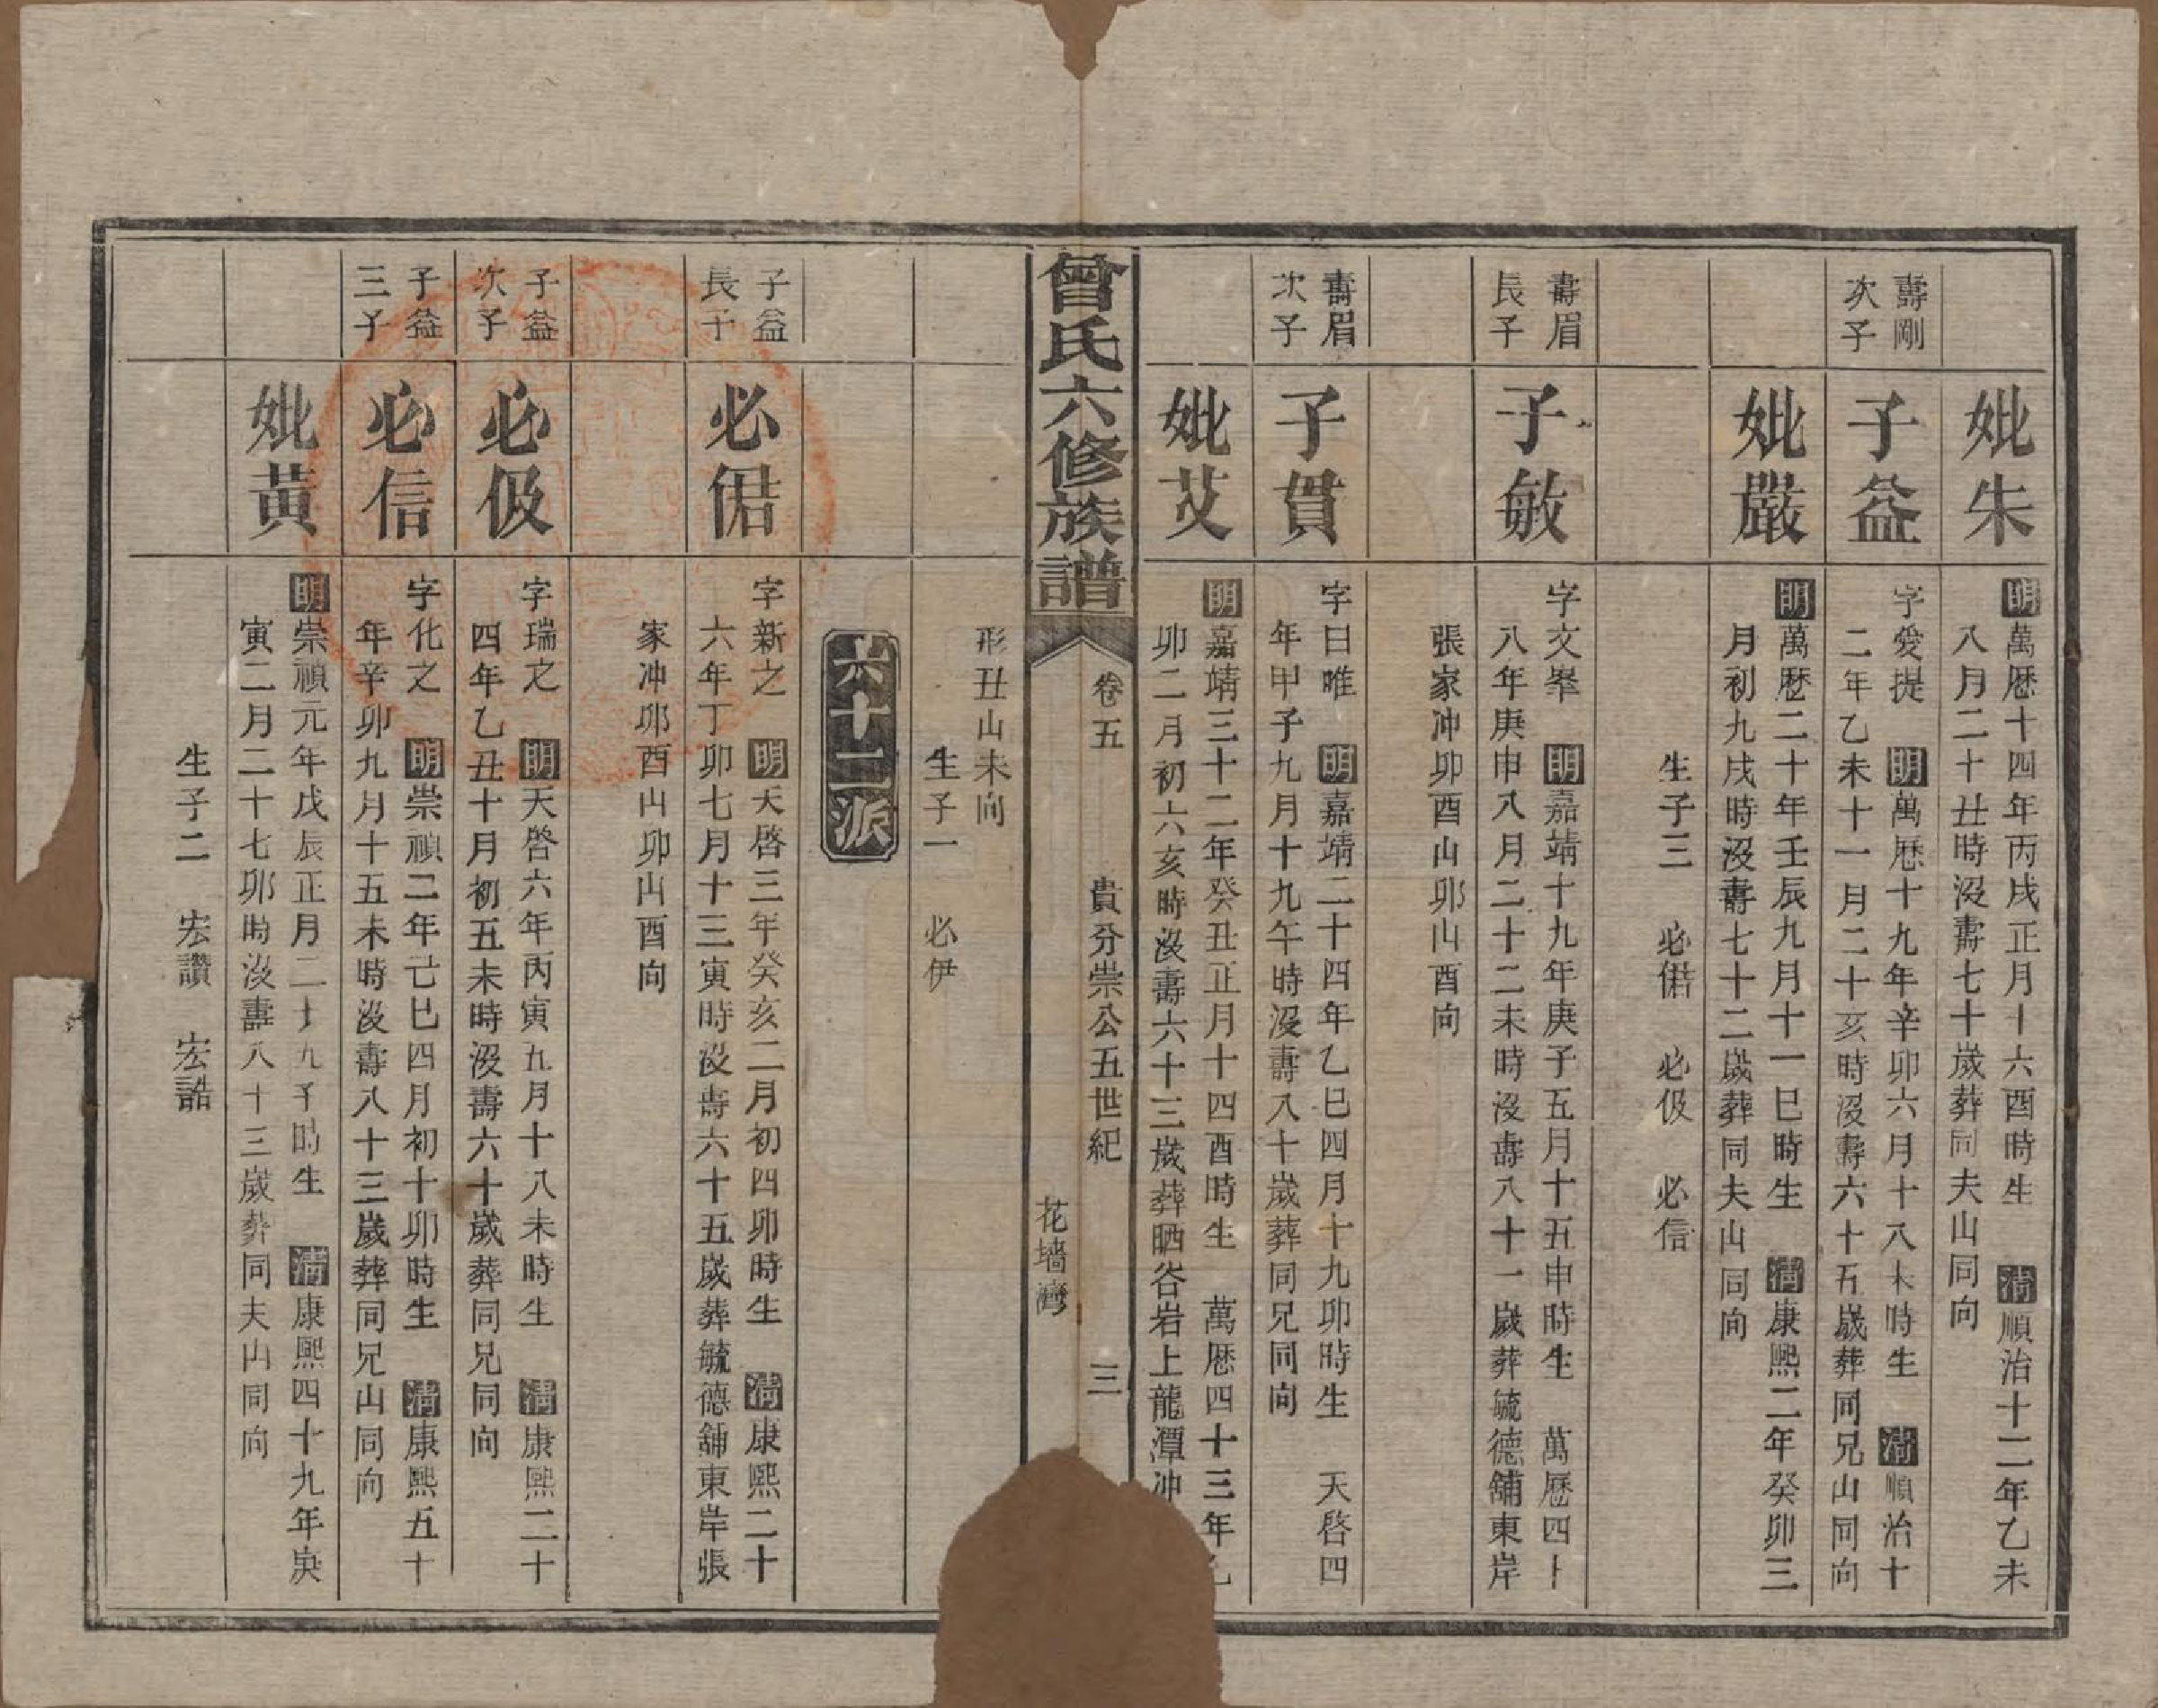 妣朱
明萬歷十四年丙戌正月十六酉時生　清順治十二年乙未
八月二十丑時沒壽七十歲葬同夫山同向
壽剛
次子
子益
字愛提　明萬歷十九年辛卯六月十八未時生　清順治十
二年乙未十一月二十亥時沒壽六十五歲葬同兄山同向
妣嚴
明萬歷二十年壬辰九月十一巳時生　清康熙二年癸卯三
月初九戌時沒壽七十二歲葬同夫山同向
生子三　必偌　必伋　必信
壽眉
長子
子敏
字文峯　明嘉靖十九年庚子五月十五申時生　萬歷四十
八年庚申八月二十二未時沒壽八十一歲葬毓德舖東岸
張家冲卯酉山卯山酉向
壽眉
次子
子貫
字曰唯　明嘉靖二十四年乙巳四月十九卯時生　天啓四
年甲子九月十九午時沒壽八十歲葬同兄同向
妣艾
明嘉靖三十二年癸丑正月十四酉時生　萬歷四十三年乙
卯二月初六亥時沒壽六十三歲葬晒谷岩上龍潭冲
曾氏六修族譜
卷五　貴分崇公五世紀　三
花墻灣
形丑山未向
生子一　必伊
六十二派
子益
長子
必偌
字新之　明天啓三年癸亥二月初四卯時生　清康熙二十
六年丁卯七月十三寅時沒壽六十五歲葬毓德舖東岸張
家冲卯酉山卯山酉向
子益
次子
必伋
字瑞之　明天啓六年丙寅五月十八未時生　清康熙二十
四年乙丑十月初五未時沒壽六十歲葬同兄同向
子益
三子
必信
字化之　明崇禎二年己巳四月初十卯時生　清康熙五十
年辛卯九月十五未時沒壽八十三歲葬同兄山同向
妣黃
明崇禎元年戊辰正月二十九子時生　清康熙四十九年庚
寅二月二十七卯時沒壽八十三歲葬同夫山同向
生子二　宏讚　宏誥